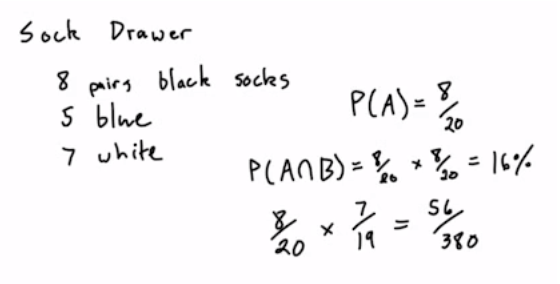 Sock Drawer
8 pairs black socks
5 blue
7 white
P(A) = 8/20
P(A∩B) = 8/20 × 8/20 = 16%
8/20 × 7/19 = 56/380